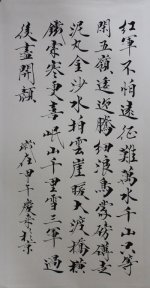 紅軍不怕遠征難萬水千山只等
閑五嶺逶迤騰細浪烏蒙磅礴走
泥丸金沙水拍雲崖暖大渡橋橫
鐵索寒更喜岷山千里雪三軍過
後盡開顏